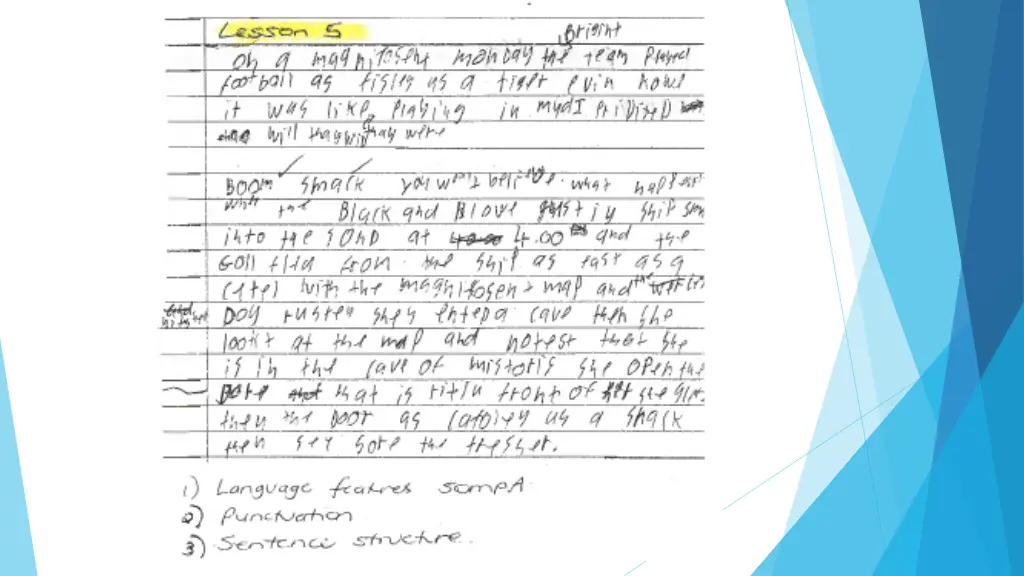 Lesson 5
Brigint
oh a magnifosent monday the team Played
football as fisley as a tiger evin howe
it was like Playing in mudI
will thay win thay were
BOOM smack you won't believe what
when the Black and Blowe ship
into the sond at 4.00 and the
Goll fled from the ship as fast as a
with the magnifosent map and the
Doy rushed she entep a cave then she
lookt at the map and notest that she
is in the cave of mistoris she open the
Dore that is rit in front of her
then the Door as as a shack
then sey sore the tresser.
1) Language features sampA
2) Punctuation
3) Sentence structure.